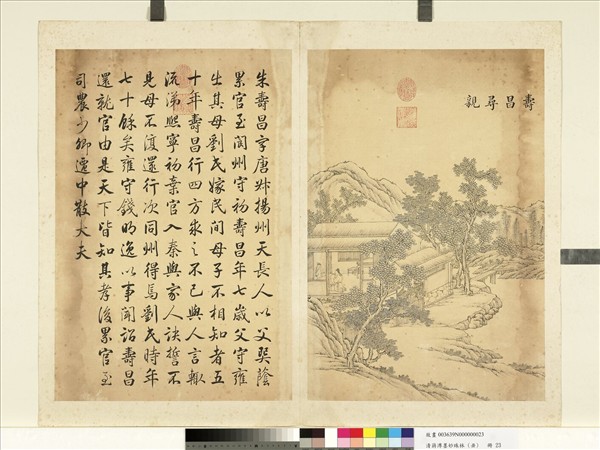 壽昌尋親
朱壽昌字唐叔揚州天長人以父巽蔭
累官至閬州守初壽昌年七歲父守雍
出其母劉氏嫁民間母子不相知者五
十年壽昌行四方求之不已與人言輒
流涕熙寧初棄官入秦與家人訣誓不
見母不復還行次同州得焉劉氏時年
七十餘矣雍守錢明逸以事聞詔壽昌
還就官由是天下皆知其孝後累官至
司農少卿遷中散大夫
故畫 003639N000000023
冊 23